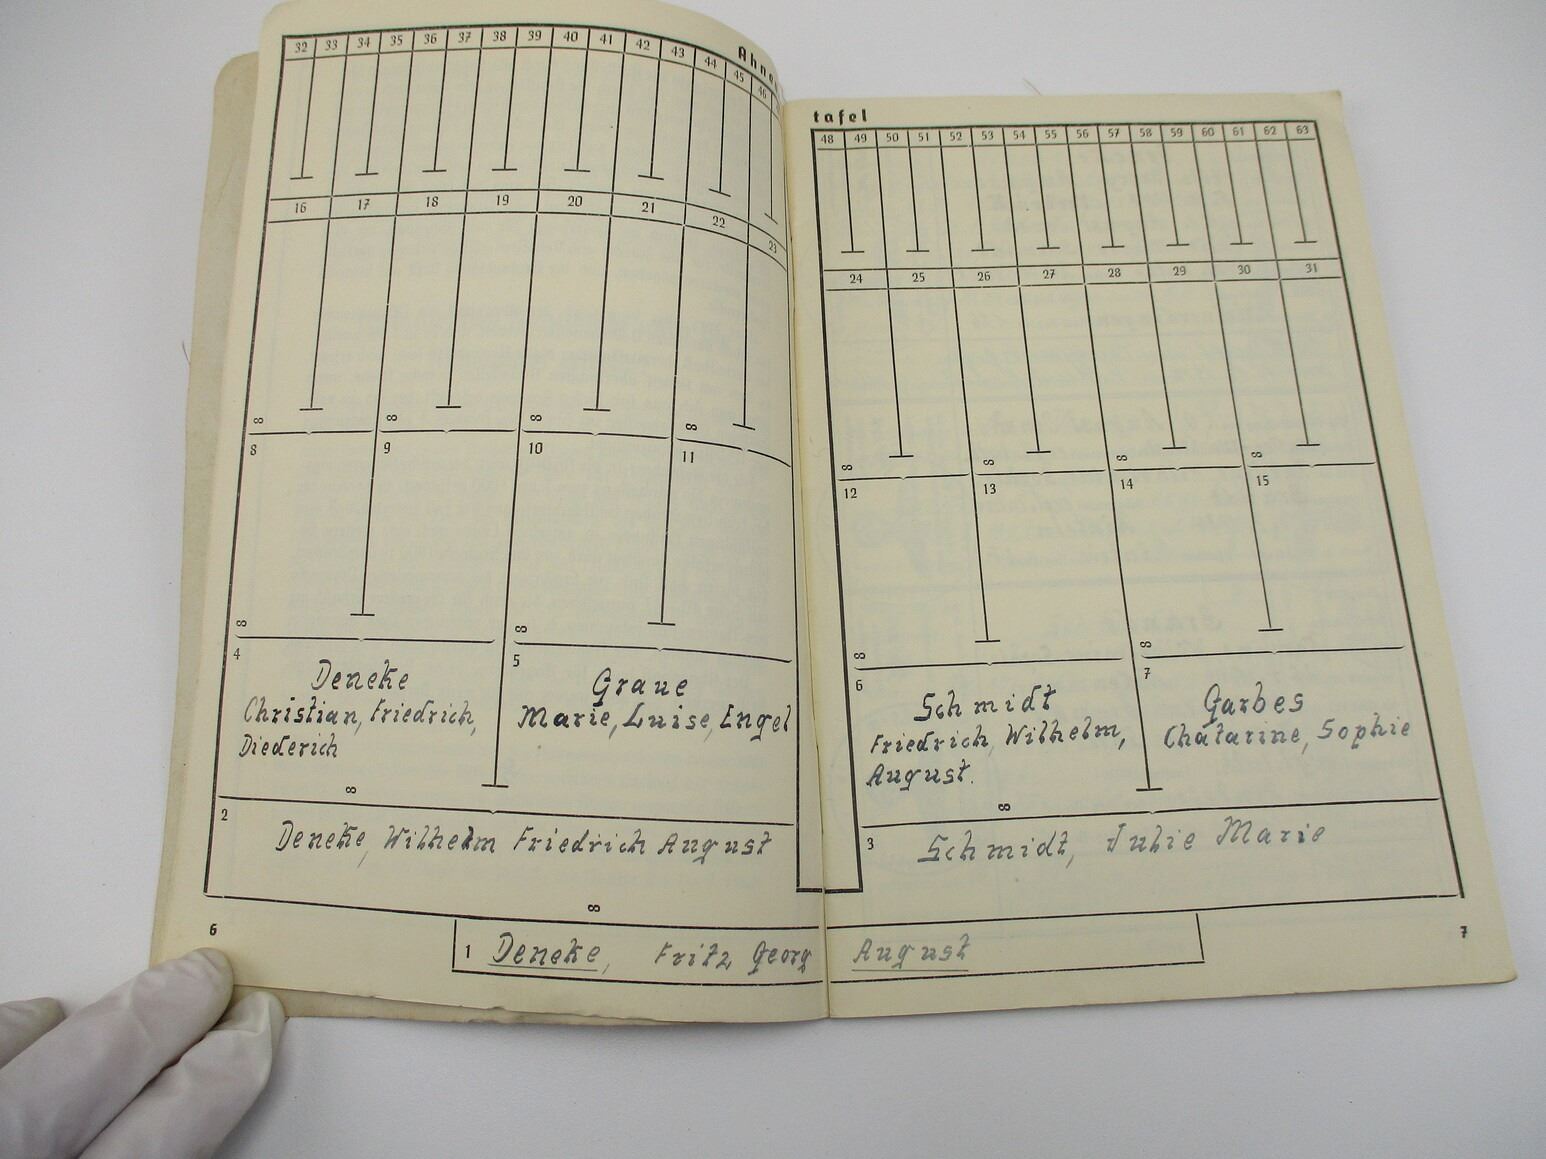 Ahne
32 33 34 35 36 37 38 39 40 41 42 43 44 45 46
16 17 18 19 20 21 22 23
∞ ∞ ∞ ∞
8 9 10 11
∞ ∞
4 Deneke
Christian, Friedrich,
Diederich
5 Graue
Marie, Luise, Engel
∞
2 Deneke, Wilhelm Friedrich August
∞
6
tafel
48 49 50 51 52 53 54 55 56 57 58 59 60 61 62 63
24 25 26 27 28 29 30 31
∞ ∞ ∞ ∞
12 13 14 15
∞ ∞
6 Schmidt
Friedrich, Wilhelm,
August.
7 Garbes
Chatarine, Sophie
∞
3 Schmidt, Julie Marie
1 Deneke, Fritz Georg August
7